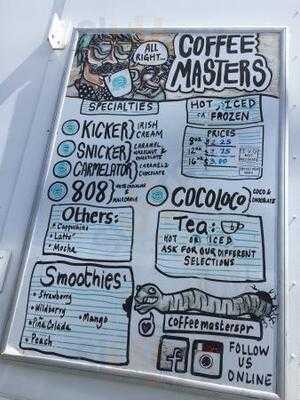 ALL RIGHT...
COFFEE
MASTERS
SPECIALTIES
HOT, ICED
OR FROZEN
KICKER
IRISH
CREAM
SNICKER
CARAMEL
HAZELNUT &
CHOCOLATE
CARMELATOR
CARAMEL &
CHOCOLATE
808
WHITE CHOCOLATE &
MACADAMIA
PRICES
8oz
12oz
16oz $3.00
COCOLOCO
COCO &
CHOCOLATE
Others:
• Cappuchino
• Latte
• Mocha
Tea:
HOT OR ICED
ASK FOR OUR DIFFERENT
SELECTIONS
Smoothies:
• Strawberry
• Wildberry
• Mango
• Piña Colada
• Peach
coffeemasterspr
FOLLOW
US
ONLINE